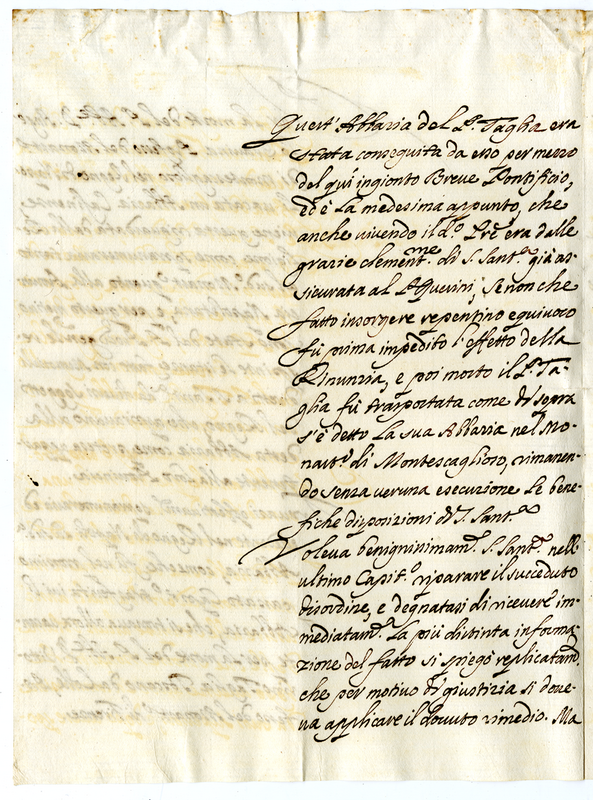 Quest' Abbazia del P. Taglia era
stata conseguita da esso per mezzo
del qui ingionto Breve Pontificio,
ed è la medesima appunto, che
anche vivendo il d.º Pre era dalle
grazie clementme di S. Santª già as-
sicurata al P. Querini; Se non che
fatto insorgere repentino equivoco
fù prima impedito l'effetto della
Rinunzia, e poi morto il P. Ta-
glia fù trasportata come di sopra
s'è detto la sua Abbazia nel Mo-
nastº di Montescaglioso, rimanen-
do senza veruna esecuzione le bene-
fiche disposizioni di S. Santª
Voleva benignissimamᵗ S. Santª nell'
ultimo Capitº riparare il succeduto
disordine, e degnatasi di ricevere im-
mediatamᵗ la più distinta informa-
zione del fatto si spiegò replicatamᵗ
che per motivo di giustizia si dove-
va applicare il dovuto rimedio. Ma